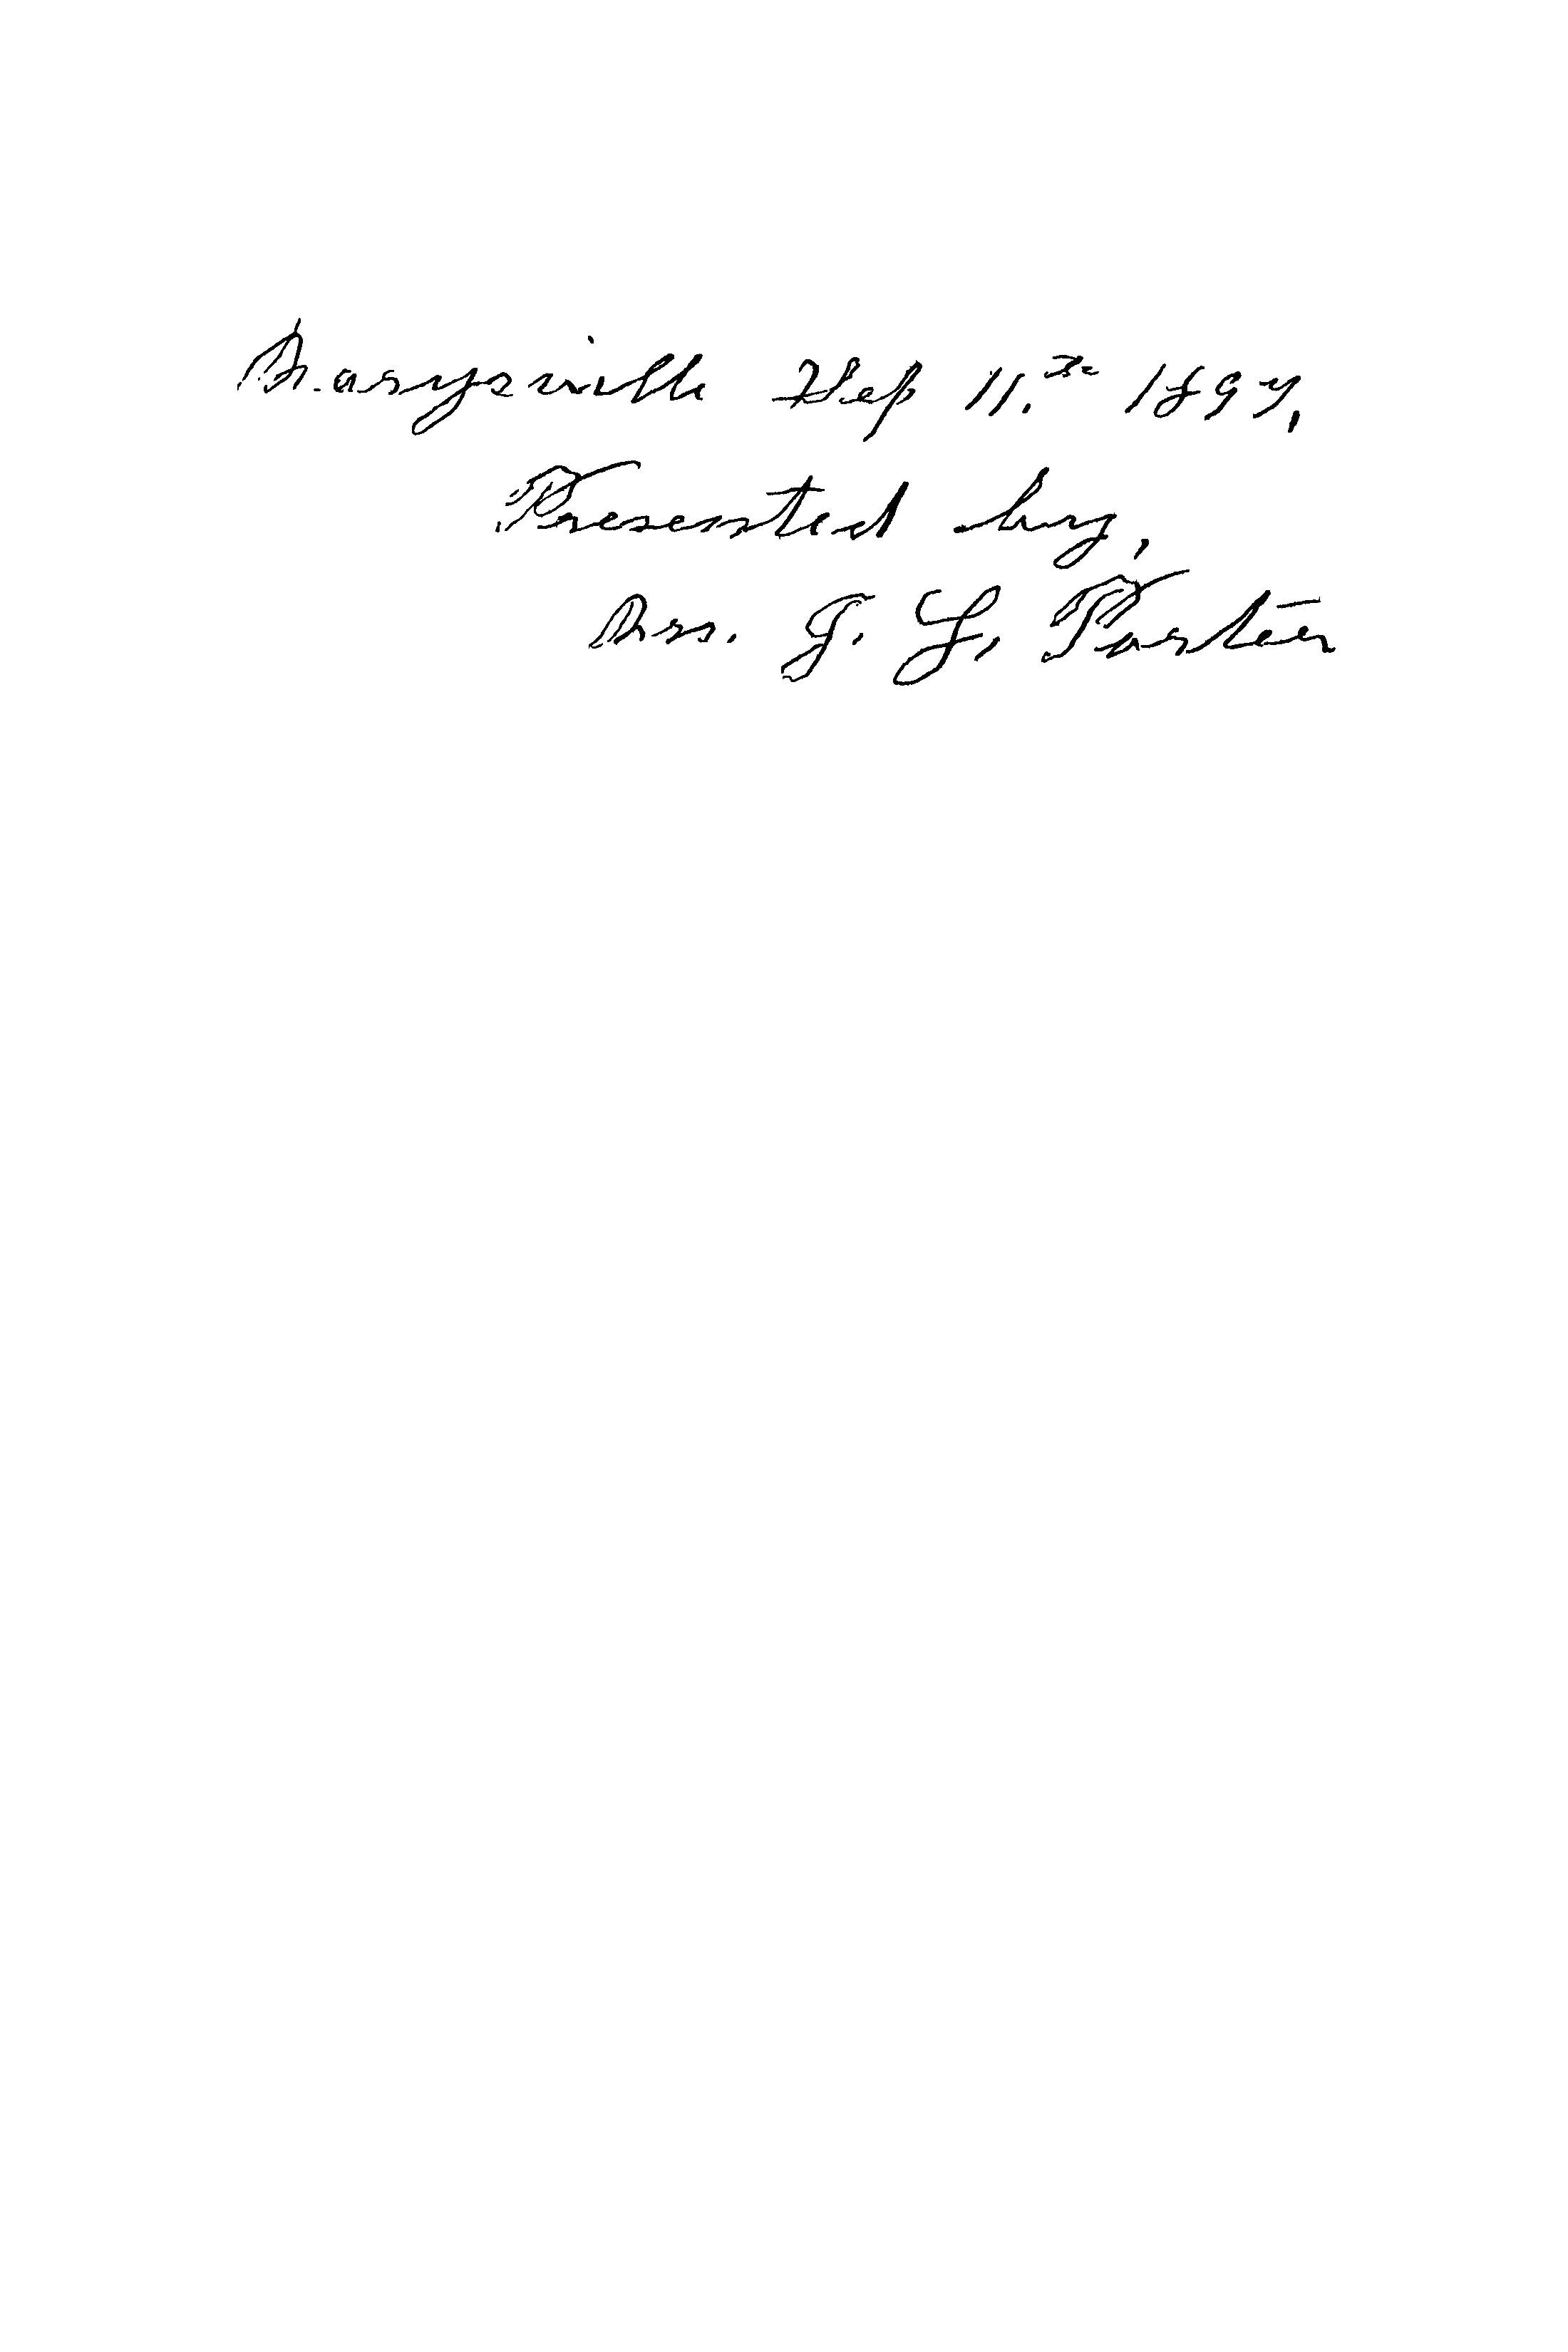 Marysville Sep 11.th 1897.
Presented by,
Mrs. J. L. Porter